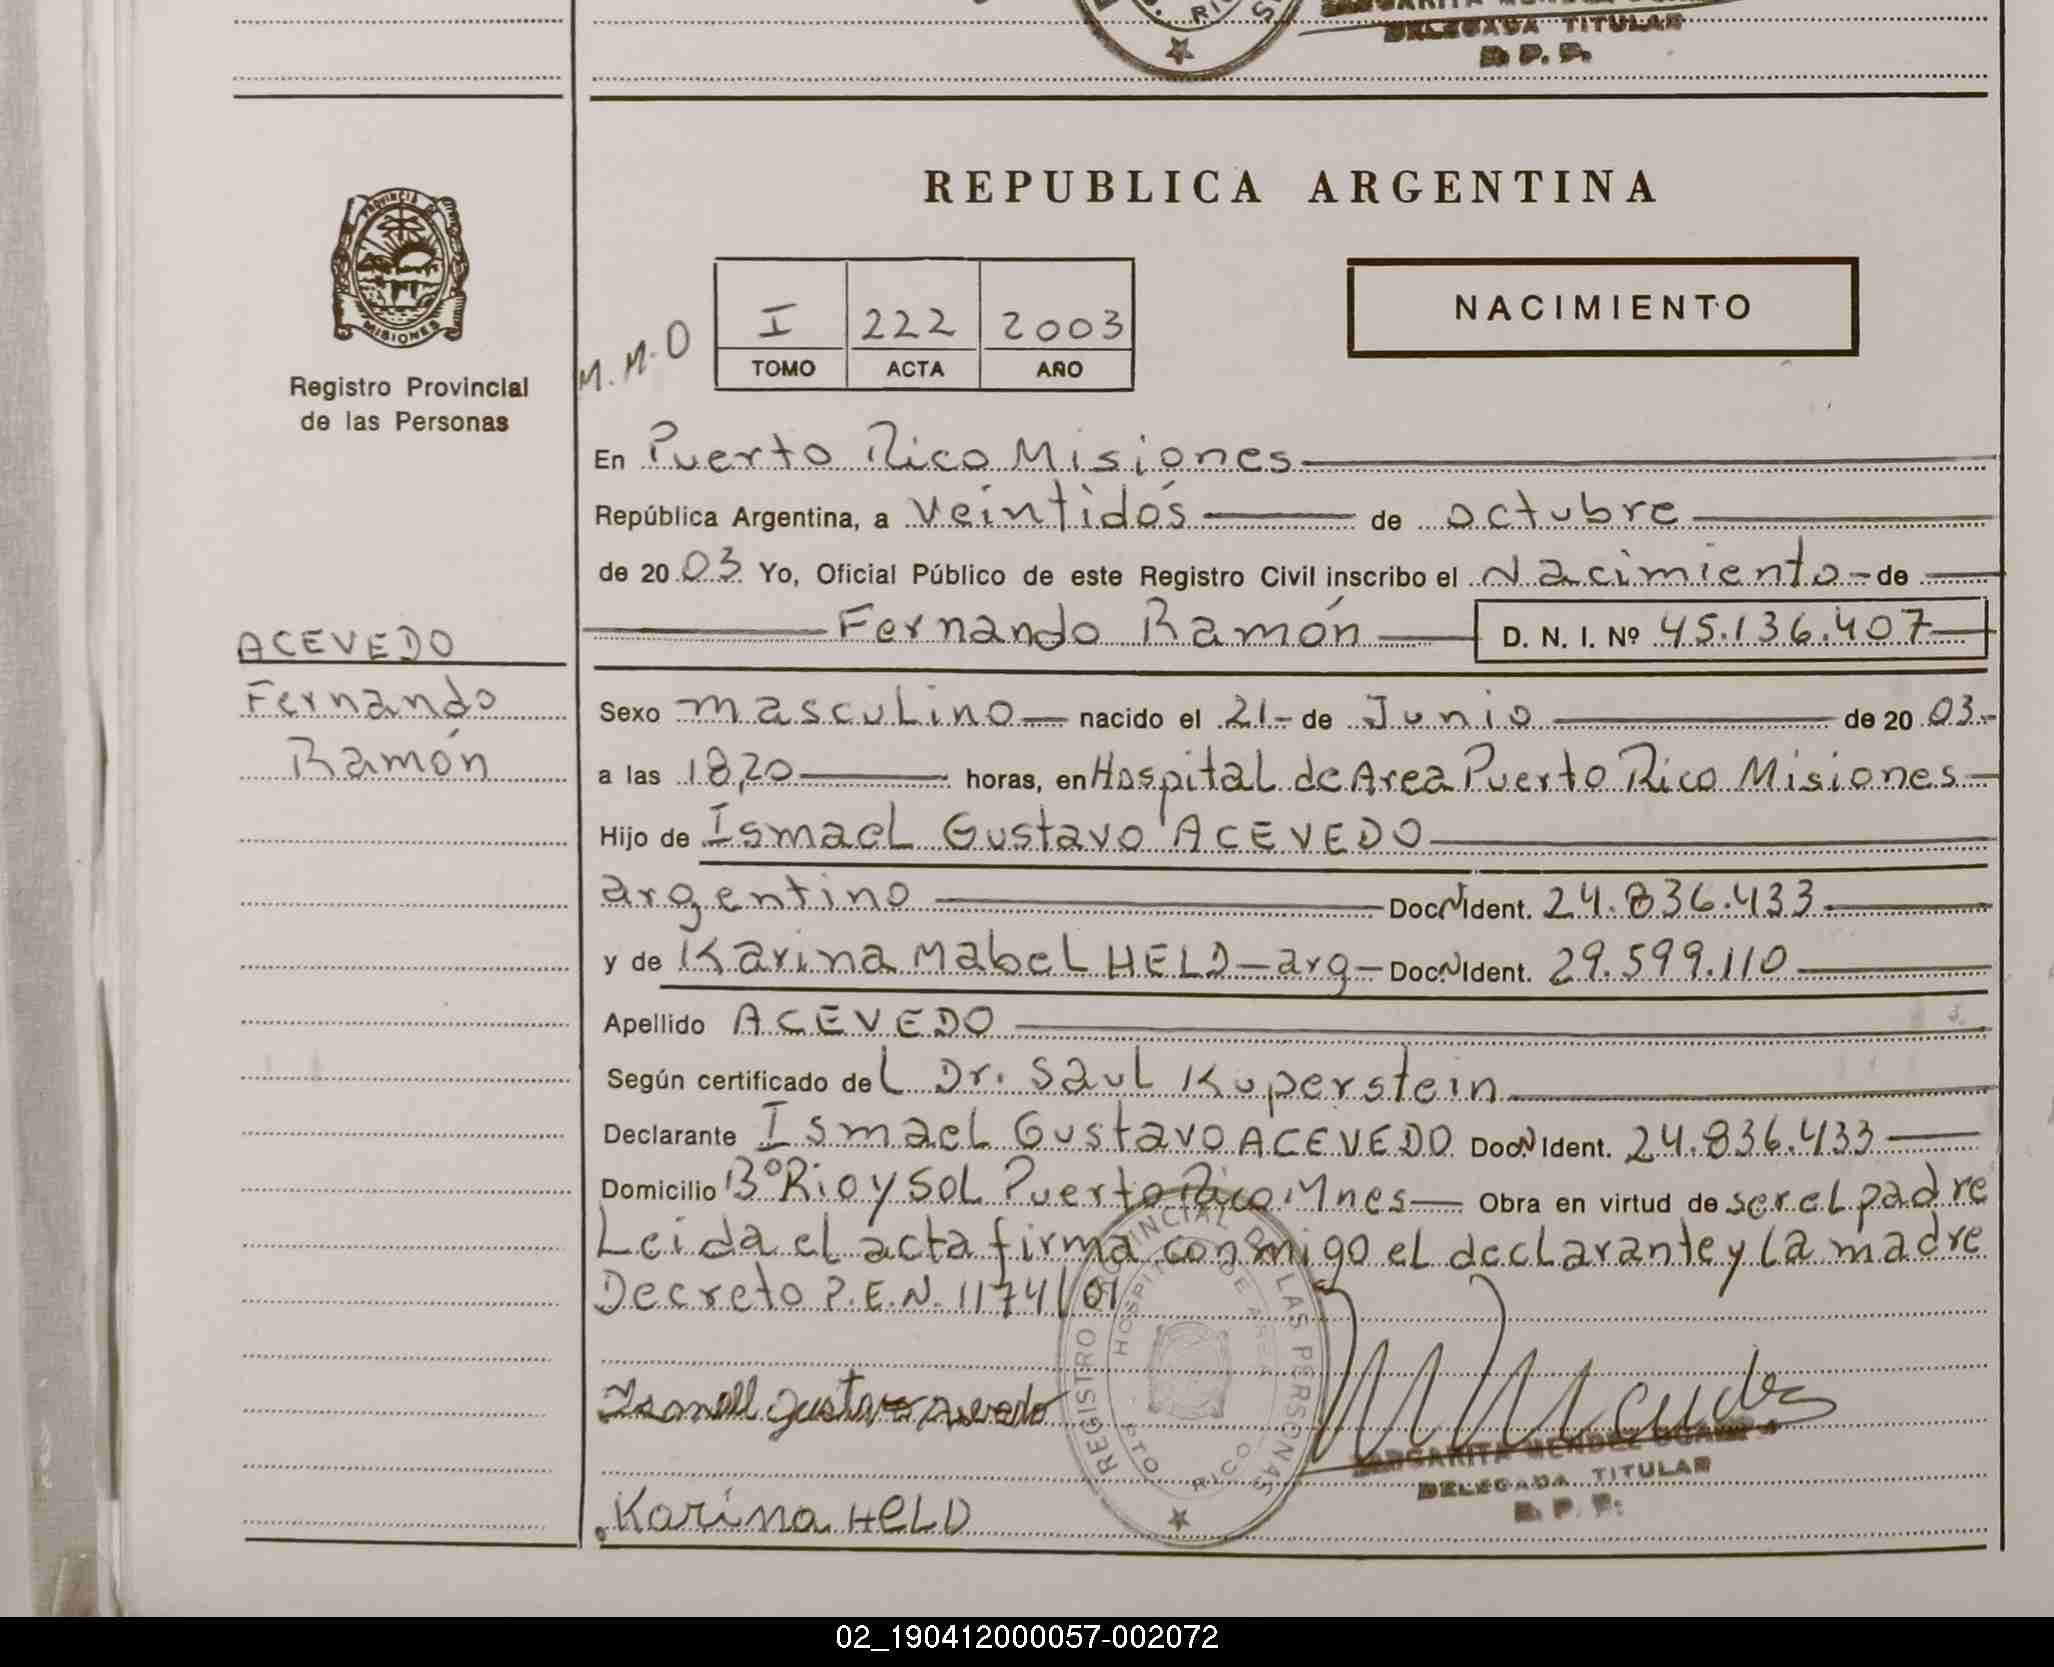 DELEGADA TITULAR
B. P. P.
PROVINCIA DE
MISIONES
Registro Provincial
de las Personas
REPUBLICA ARGENTINA
M.M.O
I 222 2003
TOMO ACTA AÑO
NACIMIENTO
En Puerto Rico Misiones
República Argentina, a veintidós de octubre
de 20 03 Yo, Oficial Público de este Registro Civil inscribo el Nacimiento - de
Fernando Ramón D. N. I. Nº 45.136.407
ACEVEDO
Fernando
Ramón
Sexo masculino nacido el 21 - de Junio de 20 03-
a las 18,20 horas, en Hospital de Area Puerto Rico Misiones
Hijo de Ismael Gustavo ACEVEDO
argentino Doc. N Ident. 24.836.433
y de Karina Mabel HELD - arg - Doc. N Ident. 29.599.110
Apellido ACEVEDO
Según certificado del Dr. Saul Kuperstein
Declarante Ismael Gustavo ACEVEDO Doc. N Ident. 24.836.433
Domicilio Bº Rio y Sol Puerto Rico Mnes Obra en virtud de ser el padre
Leida el acta firma conmigo el declarante y la madre
Decreto P.E.N. 1174/01
REGISTRO PROVINCIAL DE LAS PERSONAS
HOSPITAL DE AREA
PTO RICO
Ismael Gustavo Acevedo
MARGARITA MENDEZ
DELEGADA TITULAR
B. P. P.
Karina HELD
02_190412000057-002072